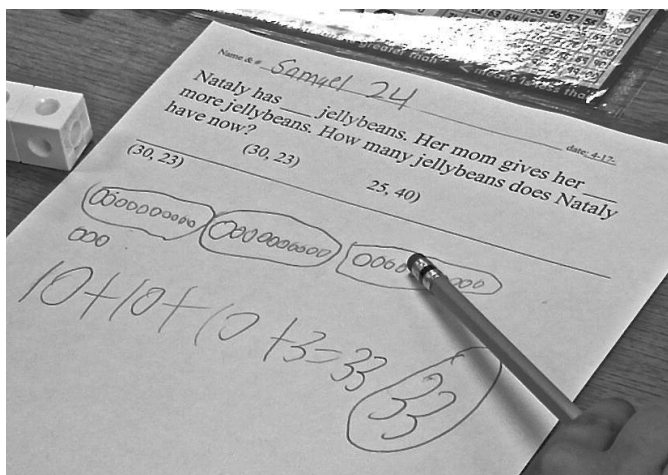 Name & # Samuel 24
date: 4-12-
Nataly has ___ jellybeans. Her mom gives her ___
more jellybeans. How many jellybeans does Nataly
have now?
(30, 23) (30, 23) 25, 40)
10+10+10+3=33 33